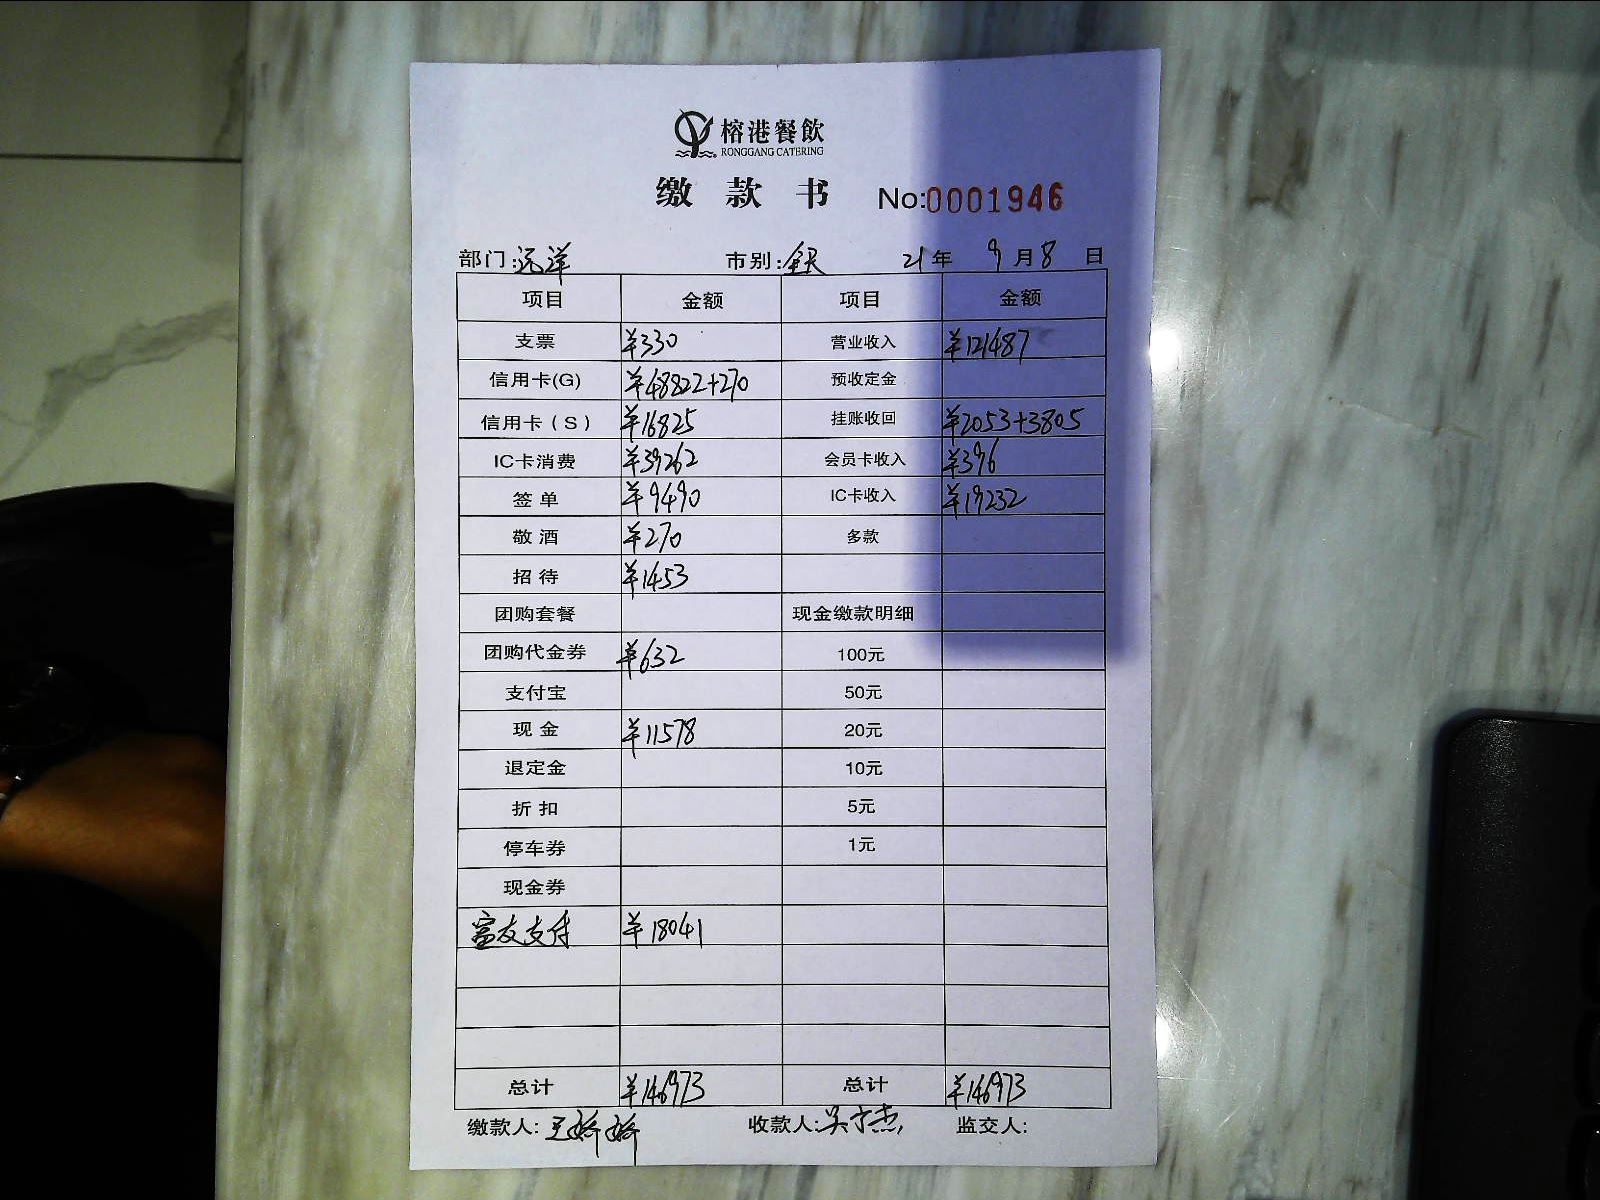 榕港餐飲
RONGGANG CATERING
缴 款 书 No:0001946
部门:远洋 市别:全天 21年 9月8日
项目 金额 项目 金额
支票 ¥330 营业收入 ¥121487
信用卡(G) ¥48822+270 预收定金
信用卡(S) ¥16825 挂账收回 ¥2053+3805
IC卡消费 ¥39262 会员卡收入 ¥396
签单 ¥9490 IC卡收入 ¥19232
敬酒 ¥270 多款
招待 ¥1453
团购套餐 现金缴款明细
团购代金券 ¥632 100元
支付宝 50元
现金 ¥11578 20元
退定金 10元
折扣 5元
停车券 1元
现金券
富友支付 ¥18041
总计 ¥146973 总计 ¥146973
缴款人:王娇娇 收款人:吴杰 监交人: